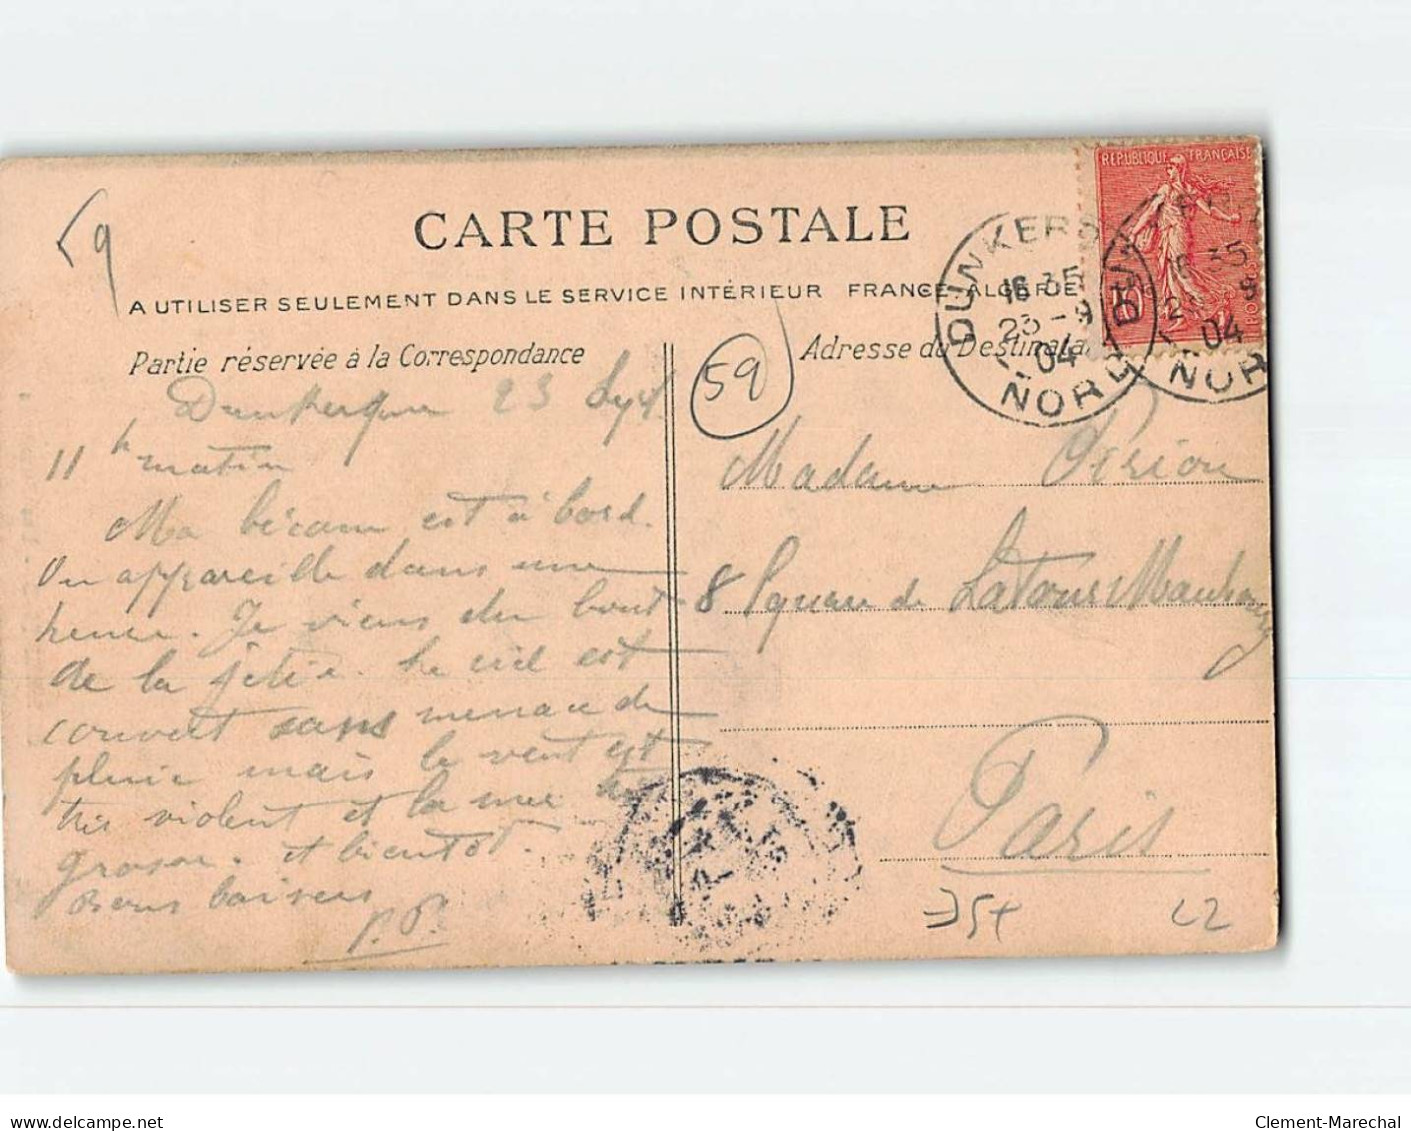 59
CARTE POSTALE
A UTILISER SEULEMENT DANS LE SERVICE INTÉRIEUR FRANCE ALGÉRIE
Partie réservée à la Correspondance
Dunkerque 23 Sept.
11 h matin
Ma bécane est à bord.
On appareille dans une
heure. Je viens du bout
de la jetée. Le ciel est
couvert sans menace de
pluie mais le vent est
très violent et la mer très
grosse. à bientôt.
Bons baisers
P.P.
59
Adresse du Destinata
Madame Périon
8 Square de Latour Maubourg
Paris
35+
L2
REPUBLIQUE FRANÇAISE
POSTES
10
DUNKERQ
16 35
23 - 9
04
NORD
DU
16 35
23 9
04
NOR
delcampe.net
Clement-Marechal